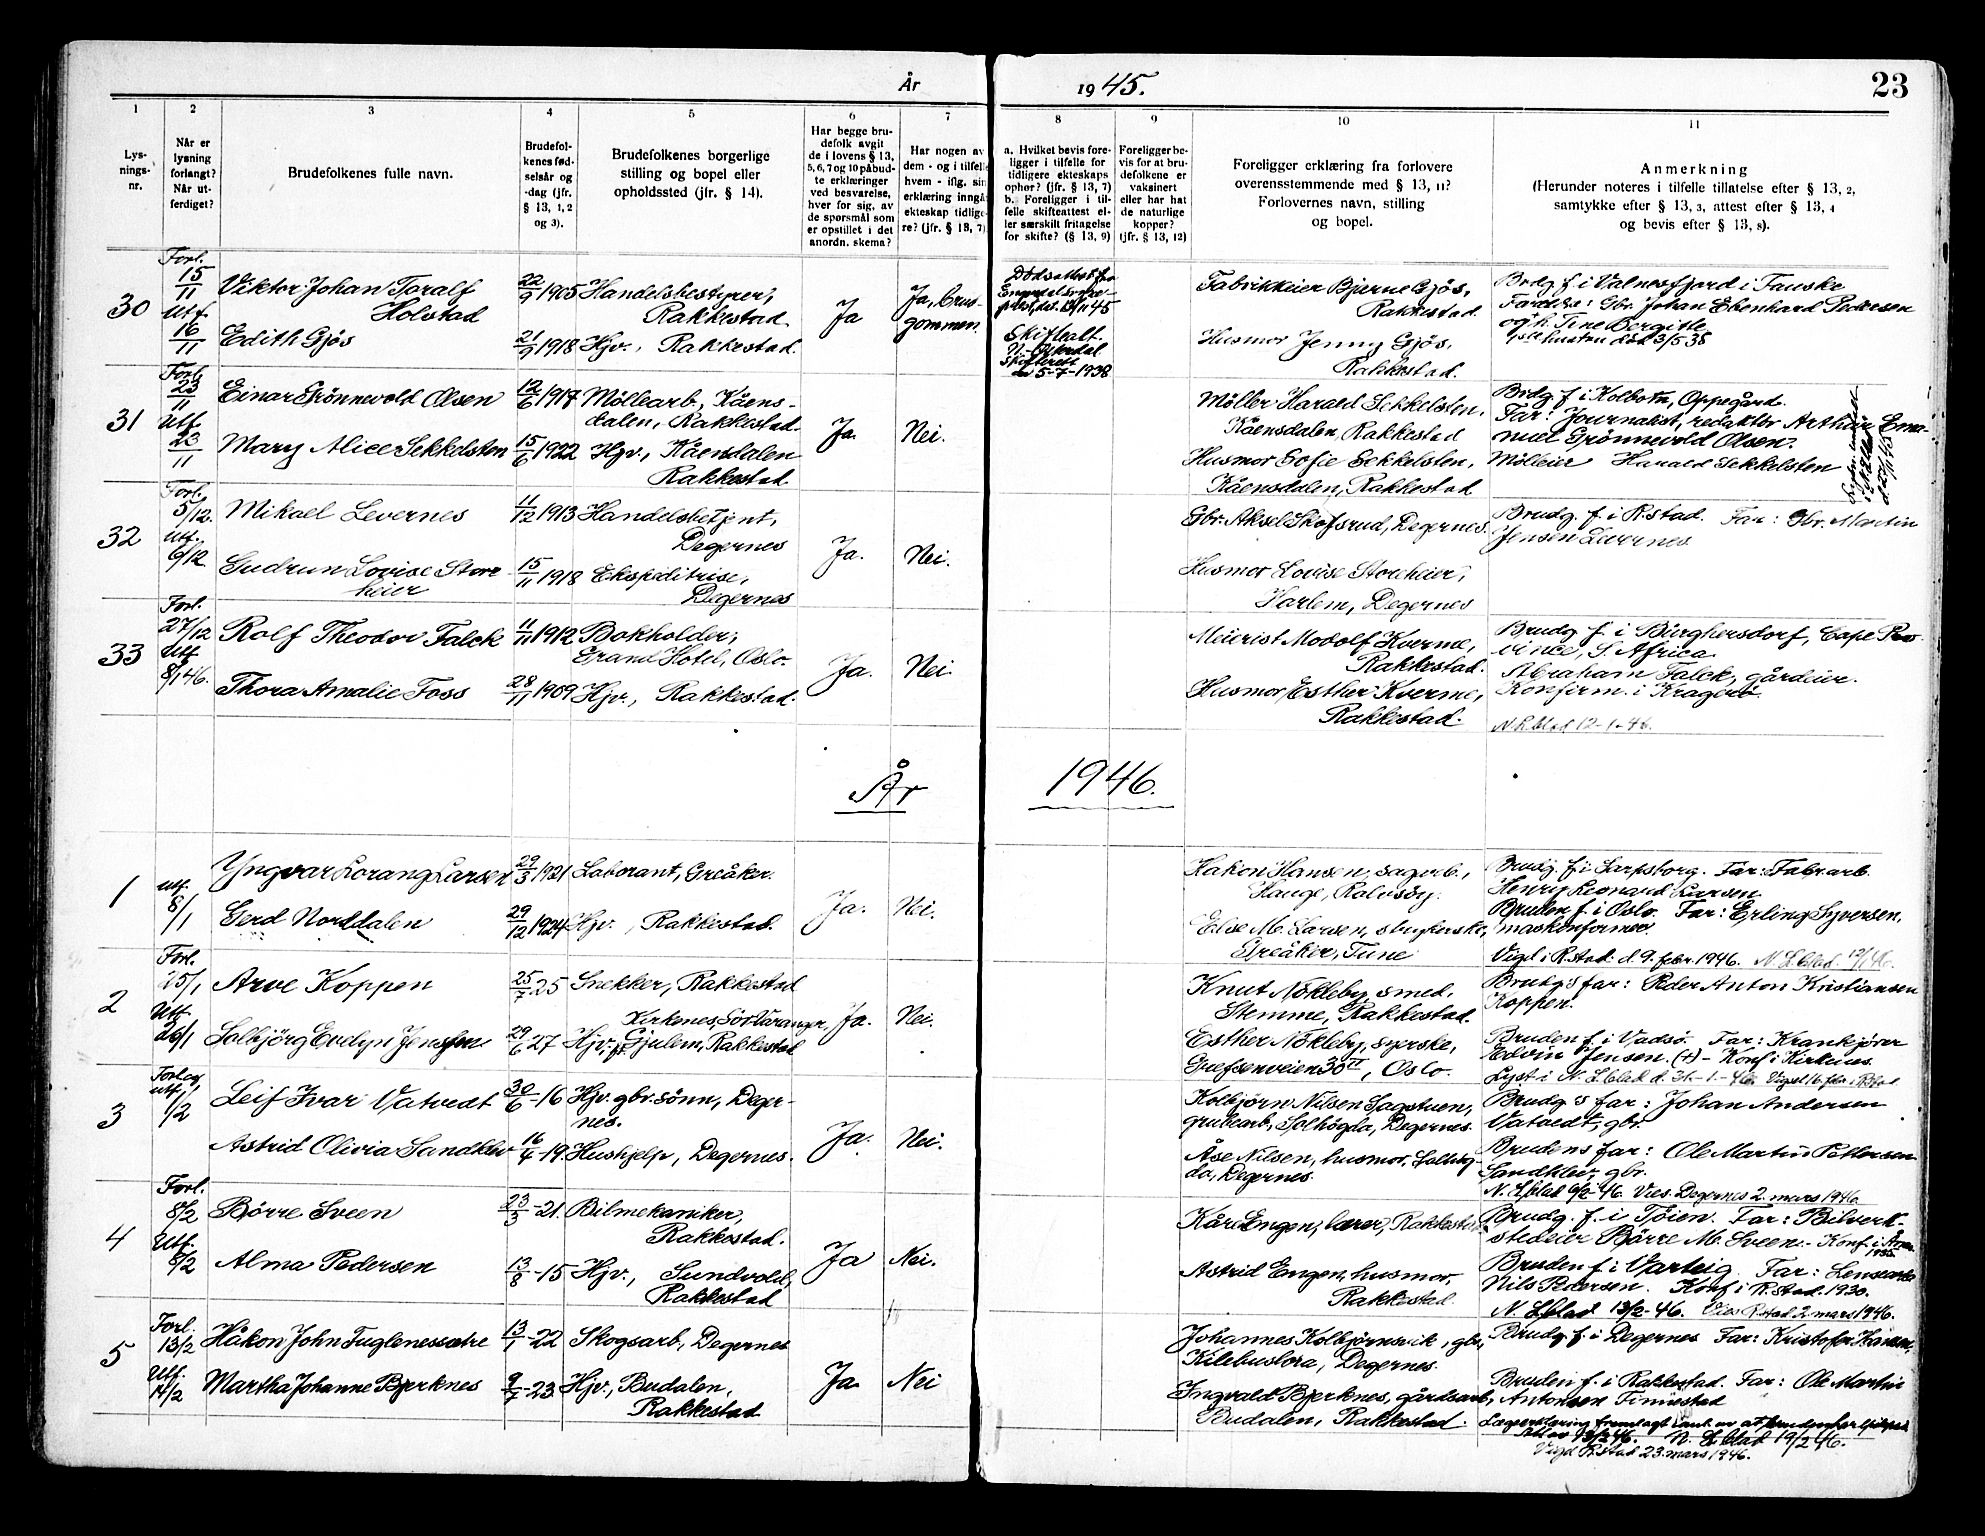 År 1945.
23
1 2 3 4 5 6 7 8 9 10 11
Lysningsnr.
Når er lysning forlangt? Når utferdiget?
Brudefolkenes fulle navn.
Brudefolkenes fødselsår og -dag (jfr. § 13, 1, 2 og 3).
Brudefolkenes borgerlige stilling og bopel eller opholdssted (jfr. § 14).
Har begge brudefolk avgit de i lovens § 13, 5, 6, 7 og 10 påbudte erklæringer ved besvarelse, hver for sig, av de spørsmål som er opstillet i det anordn. skema?
Har nogen av dem - og i tilfelle hvem - iflg. sin erklæring inngå ekteskap tidligere? (jfr. § 13, 7)
a. Hvilket bevis foreligger i tilfelle for tidligere ekteskaps ophør? (jfr. § 13, 7)
b. Foreligger i tilfelle skifteattest eller særskilt fritagelse for skifte? (§ 13, 9)
Foreligger bevis for at brudefolkene er vaksinert eller har hat de naturlige kopper? (jfr. § 13, 12)
Foreligger erklæring fra forlovere overensstemmende med § 13, 11? Forlovernes navn, stilling og bopel.
Anmerkning
(Herunder noteres i tilfelle tillatelse efter § 13, 2, samtykke efter § 13, 3, attest efter § 13, 4 og bevis efter § 13, 8).
30
Forl. 15/11
Utf. 16/11
Viktor Johan Toralf Holstad
22/9 1905
Handelsbestyrer, Rakkestad
Edith Gjøs
21/9 1918
Hjv., Rakkestad.
Ja
Ja, brudgommen.
Skifteatt.
5-7-1938
Fabrikkeier Bjerne Gjøs, Rakkestad
Husmor Jenny Gjøs, Rakkestad.
Brdg. f. i Valnesfjord i Fauske
Gbr. Johan Ebenhard Pedersen
og h. Tine Bergitte
hustru död 3/5 38
31
Forl. 23/11
Utf. 23/11
Einar Grönnevold Olsen
12/6 1917
Möllearb., Kåensdalen, Rakkestad.
Mary Alice Sekkelsten
15/6 1922
Hjv., Kåensdalen Rakkestad
Ja.
Nei.
Möller Harald Sekkelsten, Kåensdalen, Rakkestad
Husmor Sofie Sekkelsten, Kåensdalen, Rakkestad
Brdg. f. i Kolbotn, Oppegård.
Far: Journalist, redaktör Arthur Emanuel Grönnevold Olsen.
Mölleier Harald Sekkelsten
32
Forl. 5/12.
Utf. 6/12
Mikael Levernes
11/12 1913
Handelsbetjent, Degernes
Gudrun Lovise Storeheier
15/11 1918
Ekspeditrise, Degernes
Ja.
Nei.
Gbr. Aksel Skofsrud, Degernes.
Husmor Lovise Storeheier, Harlem, Degernes
Brudg. f. i R.stad. Far: Gbr. Martin Jensen Levernes
33
Forl. 27/12
Utf. 8/1 46.
Rolf Theodor Falck
11/11 1912
Bokholder, Grand Hotel, Oslo.
Thora Amalie Foss
28/11 1909
Hjv., Rakkestad.
Ja.
Nei.
Meierist Modolf Kverme, Rakkestad.
Husmor Esther Kverme, Rakkestad.
Brudg f. i Burghersdorf, Cape Province, S. Africa
Abraham Falck, gårdeier.
Konfirm. i Kragerö.
N. L.blad 12-1-46.
År 1946.
1
Utf. 8/1
Yngvar Lorang Larsen
29/3 1921
Laborant, Greåker.
Gerd Norddalen
29/12 1924
Hjv., Rakkestad.
Ja.
Nei.
Hakon Hansen, sagarb., Hauge, Rolvsöy.
Else M. Larsen, strykerske, Greåker, Tune
Brudg. f. i Sarpsborg. Far: Fabr.arb. Henry Leonard Larsen
Bruden f. i Oslo. Far: Erling Syversen, maskonformer
Vigd i R.stad. d. 9. febr. 1946. N. L.blad 12/1 46.
2
Forl. 25/1
Utf. 26/1
Arve Koppen
25/7 25
Snekker, Rakkestad
Solbjörg Evelyn Jenssen
29/6 27
Kirkenes, Sör Varanger,
Hjv., Gjulem, Rakkestad
Ja.
Nei.
Knut Nökleby, smed, Stemme, Rakkestad.
Esther Nökleby, syerske, Grefsenveien 30 II, Oslo.
Brudg's far: Peder Anton Kristiansen Koppen.
Bruden f. i Vadsö. Far: Krankjörer Edvin Jensen. (+) - Konf. i Kirkenes
Lyst i N. L.blad d. 31-1-46. Vigsl 16. febr. i R.stad
3
Forl. og utf. 1/2
Leif Ivar Vatvedt
30/6 - 16
Hjv. gbr. sönn, Degernes.
Astrid Olivia Sandklev
16/4 - 19.
Hushjelp, Degernes.
Ja.
Nei.
Kolbjörn Nilsen Sagstuen, Solhögda, Degernes.
Åse Nilsen, husmor, Solhögda, Degernes.
Brudg's far: Johan Andersen Vatvedt, gbr.
Brudens far: Ole Martin Pettersen Sandklev, gbr.
N. L.blad 6/2-46. Vies. Degernes 2. mars 1946.
4
Forl. 8/2
Utf. 8/2
Börre Sveen
23/3 - 21.
Bilmekaniker, Rakkestad.
Alma Pedersen
13/8 - 15
Hjv., Sundvold, Rakkestad
Ja
Nei.
Kåre Engen, lærer, Rakkestad
Astrid Engen, husmor, Rakkestad.
Brudg. f. i Töien. Far: Bilverkstedeier Börre M. Sveen. - Konf. i
Bruden f. i Varteig. Far:
Nils Pedersen. Konf. i R.stad. 1930.
N. L.blad 13/2-46. Vies R.stad 2. mars 1946.
5
Forl. 13/2
Utf. 14/2
Håkon John Fuglenessætre
13/1 - 22
Skogsarb., Degernes
Martha Johanne Bjerknes
9/7 - 23
Hjv., Budalen, Rakkestad
Ja
Nei
Johannes Kolbjörnsvik, gbr., Degernes.
Ingvald Bjerknes, gårdsarb., Budalen, Rakkestad.
Brudg. f. i Degernes Far: Kristofer Hansen,
Bruden f. i Rakkestad. Far: Ole Martin Antonsen Finnestad
Lægeerklæring fremlagt
13/2 46. N. L.blad 19/2 46.
Vigd R.stad 23. mars 1946.